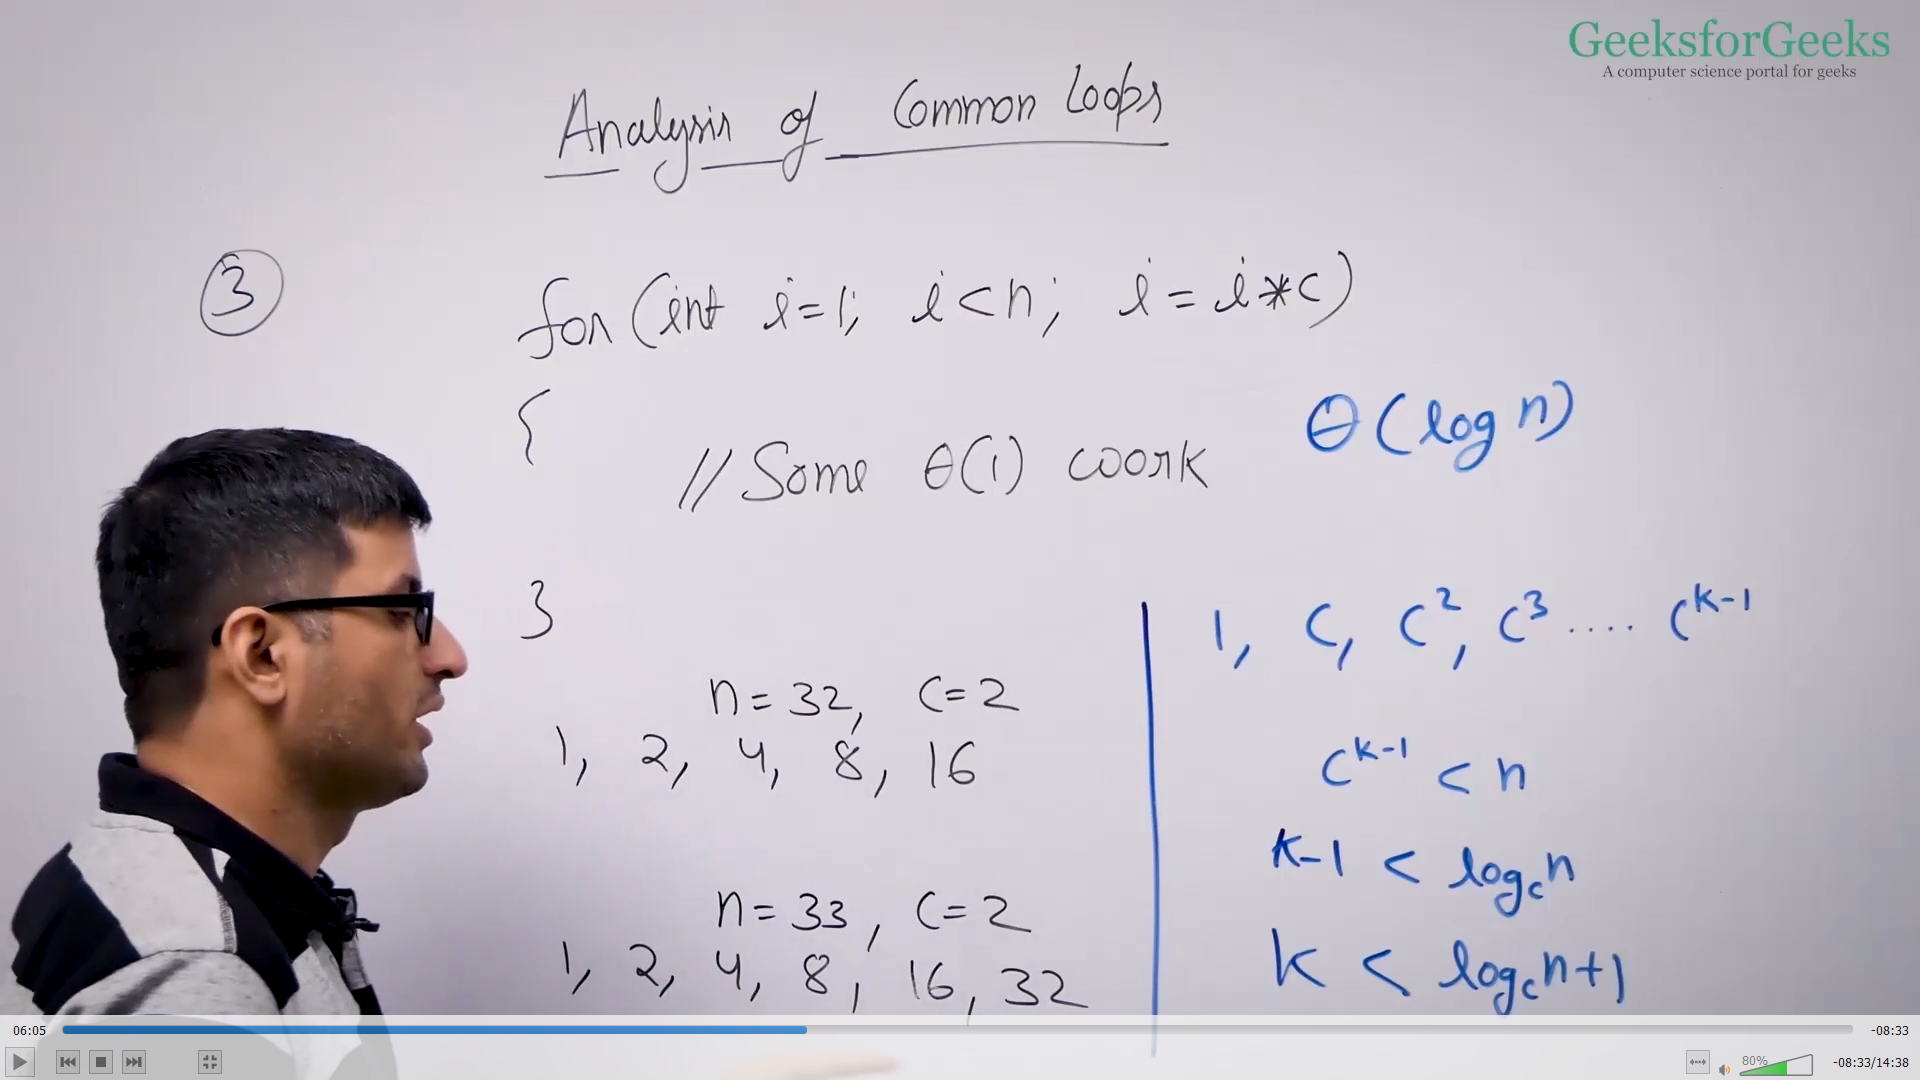 GeeksforGeeks
A computer science portal for geeks
Analysis of Common Loops
3
for (int i=1; i<n; i=i*c)
{
// Some θ(1) work
θ(log n)
}
n=32, c=2
1, 2, 4, 8, 16
n=33, c=2
1, 2, 4, 8, 16, 32
1, c, c², c³ .... c^(k-1)
c^(k-1) < n
k-1 < log_c n
k < log_c n+1
06:05
-08:33
80%
-08:33/14:38